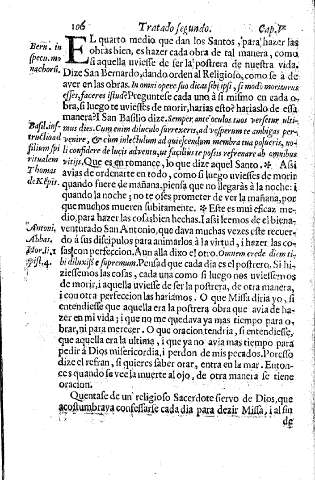 106
Tratado segundo.
Cap. V.
EL quarto medio que dan los Santos, para hazer las
obras bien, es hazer cada obra de tal manera, como
si aquella uviesse de ser la postrera de nuestra vida.
Dize San Bernardo, dando orden al Religioso, como se à de
aver en las obras. In omni opere suo dicat sibi ipsi, si modò moriturus
esses, faceres istud? Preguntese cada uno à si mismo en cada o
bra, si luego te uviesses de morir, harias esto? hariaslo de essa
manera? I San Basilio dize. Semper ante oculos tuos versetur ulti-
mus dies. Cum enim diluculo surrexeris, ad vesperum te ambigas per-
venire, & cum in lectulum ad quiescendum membra tua posueris, no-
li confidere de lucis adventu, ut facilius te possis refrenare ab omnibus
vitijs. Que es en romance, lo que dize aquel Santo. Assi
avias de ordenarte en todo, como si luego uviesses de morir
quando fuere de mañana, piensa que no llegaràs à la noche: i
quando la noche; no te oses prometer de ver la mañana, por
que muchos mueren subitamente. Este es mui eficaz me-
dio, para hazer las cosas bien hechas. I assi leemos del bien a
venturado San Antonio, que dava muchas vezes este recuer-
do à sus discipulos para animarlos à la virtud, i hazer las co-
sas con perfeccion. Aun allà dixo el otro. Omnem crede diem ti-
bi diluxisse supremum. Pensad que cada dia es el postrero. Si hi-
ziessemos las cosas, cada una como si luego nos uviessemos
de morir, i aquella uviesse de ser la postrera, de otra manera,
i con otra perfeccion las hariamos. O que Missa diria yo, si
entendiesse que aquella era la postrera obra que avia de ha-
zer en mi vida; i que no me quedava ya mas tiempo para o-
brar, ni para merecer. O que oracion tendria, si entendiesse,
que aquella era la ultima, i que ya no avia mas tiempo para
pedir à Dios misericordia, i perdon de mis pecados. Por esso
dize el refran, si quieres saber orar, entra en la mar. Enton-
ces quando se vee la muerte al ojo, de otra manera se tiene
oracion.
Quentase de un religioso Sacerdote siervo de Dios, que
acostumbrava confessarse cada dia para dezir Missa, i al fin
de
Bern. in
specu. mo
nachorũ.
Basil. inst
tructio ad
filium spi
ritualem
Thomas
de Kẽpis.
Antoni.
Abbas.